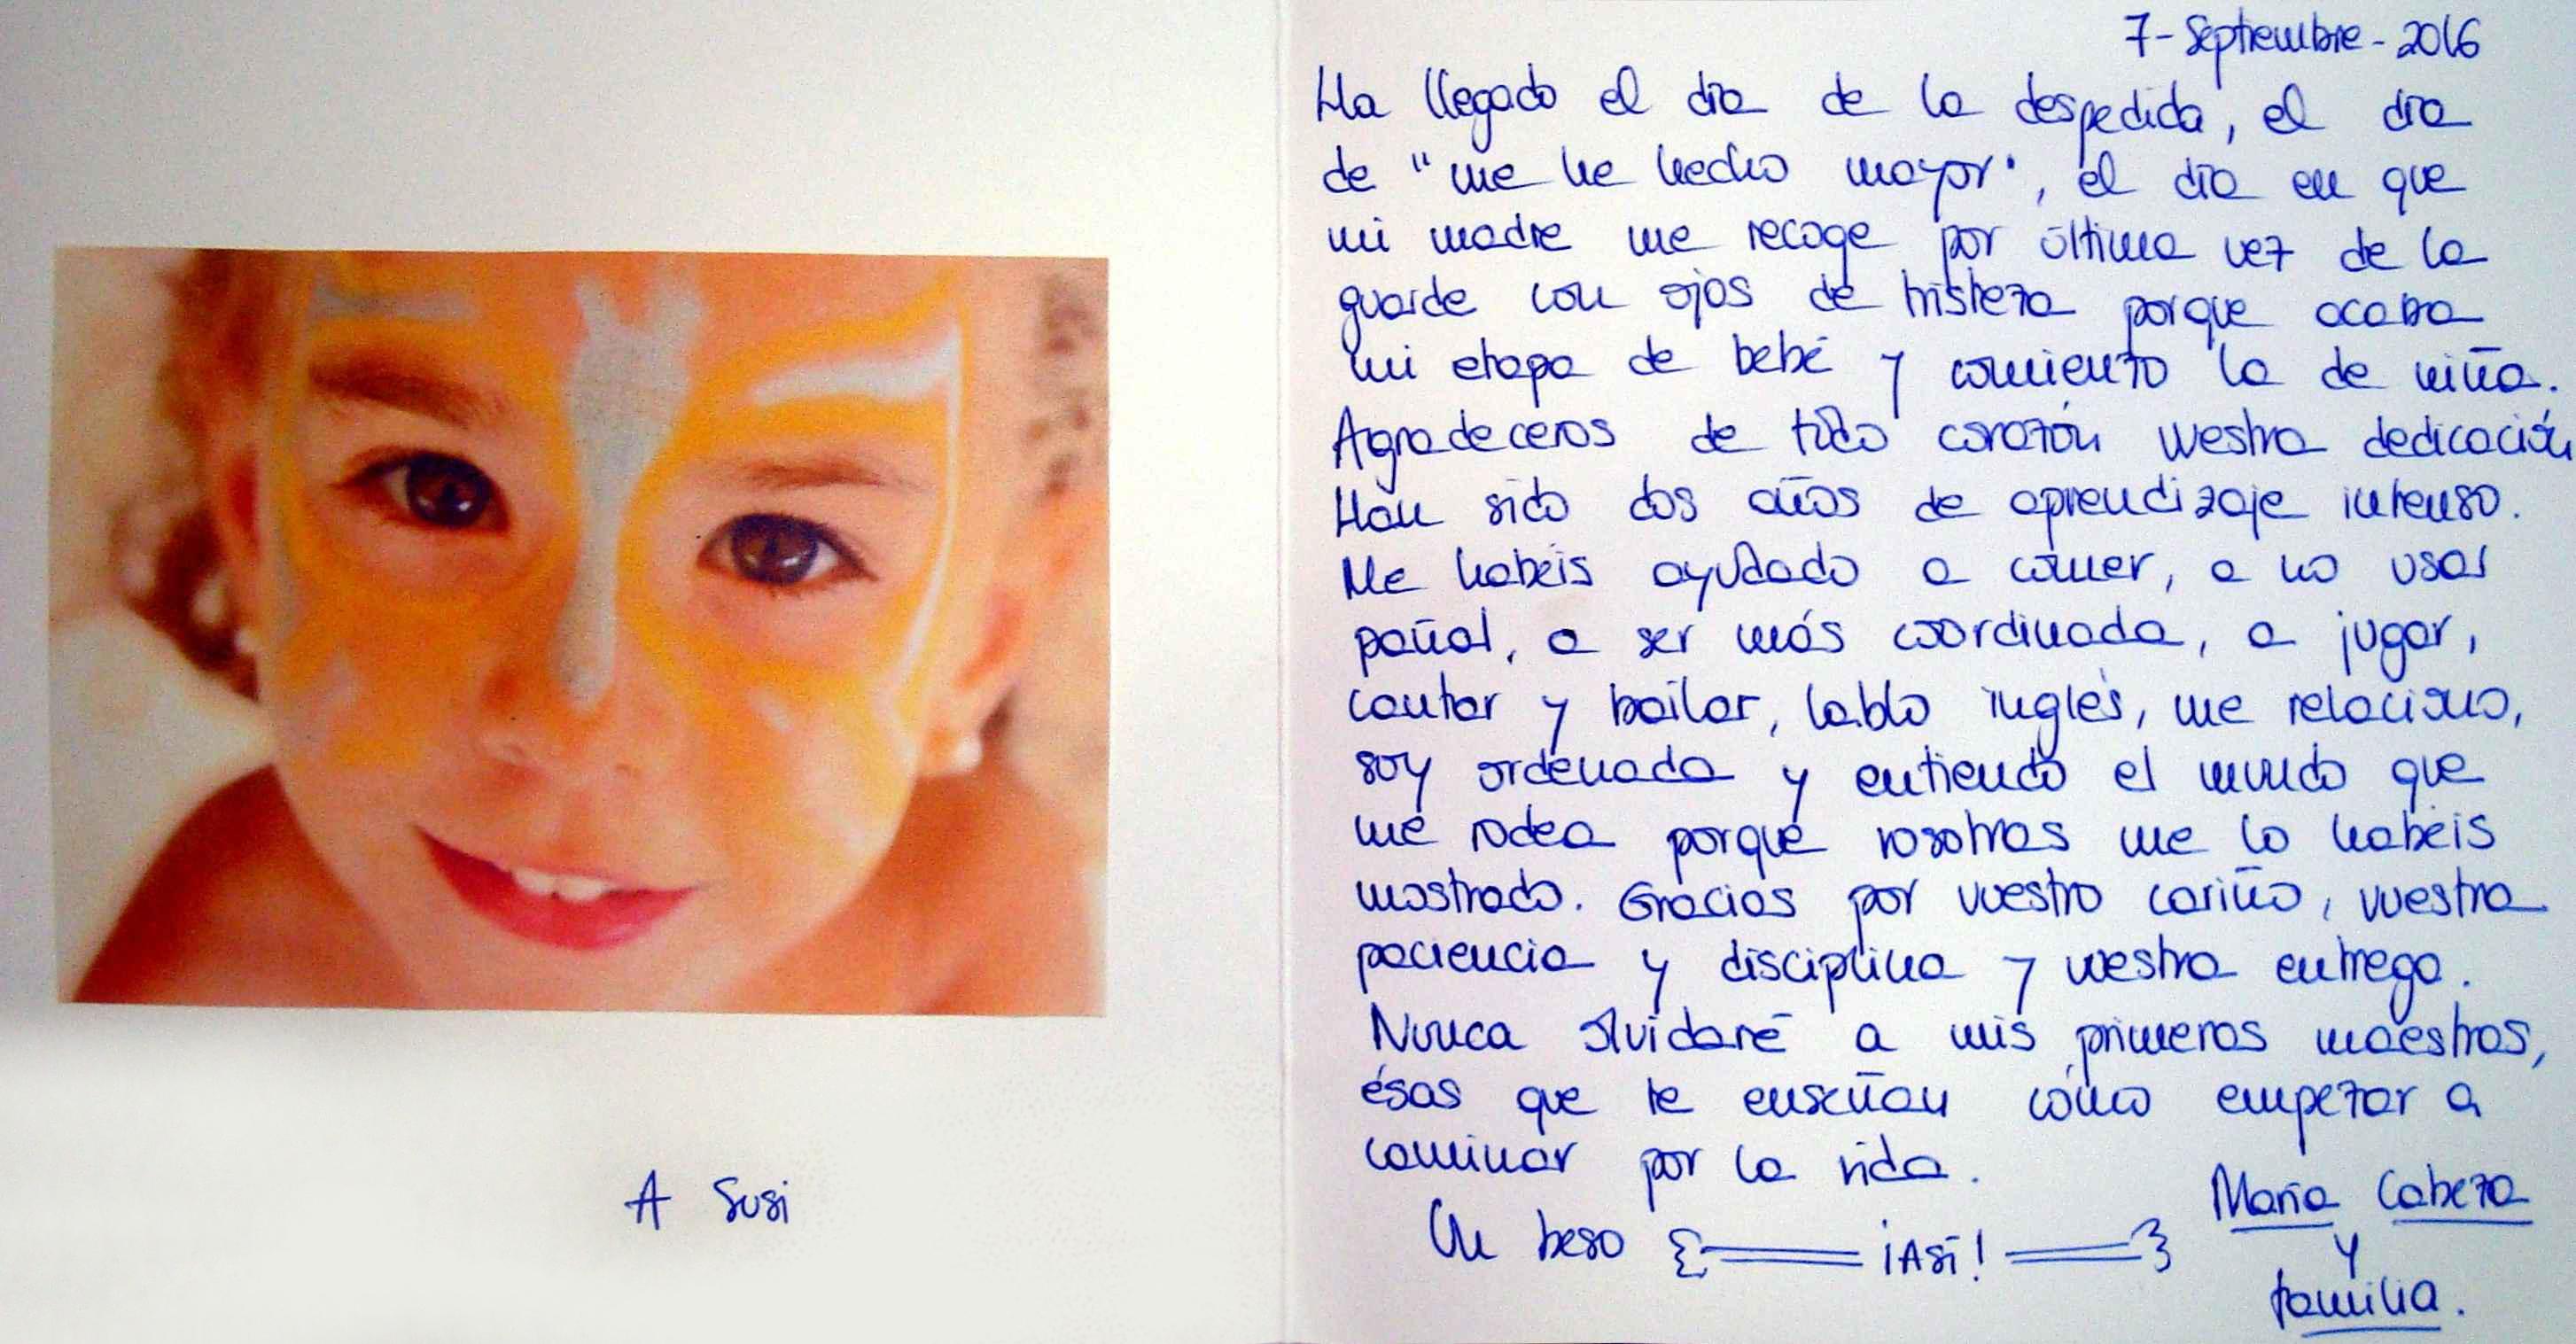 A Susi
7-Septiembre-2016
Ha llegado el día de la despedida, el día
de "me he hecho mayor", el día en que
mi madre me recoge por última vez de la
guarde con ojos de tristeza porque acaba
mi etapa de bebé y comienzo la de niña.
Agradeceros de todo corazón vuestra dedicación
Han sido dos años de aprendizaje intenso.
Me habéis ayudado a comer, a no usar
pañal, a ser más coordinada, a jugar,
cantar y bailar, hablo inglés, me relaciono,
soy ordenada y entiendo el mundo que
me rodea porque vosotras me lo habéis
mostrado. Gracias por vuestro cariño, vuestra
paciencia y disciplina y vuestra entrega.
Nunca olvidaré a mis primeras maestras,
ésas que te enseñan cómo empezar a
caminar por la vida.
Un beso ¡Así!
María Cabeza
y
familia.